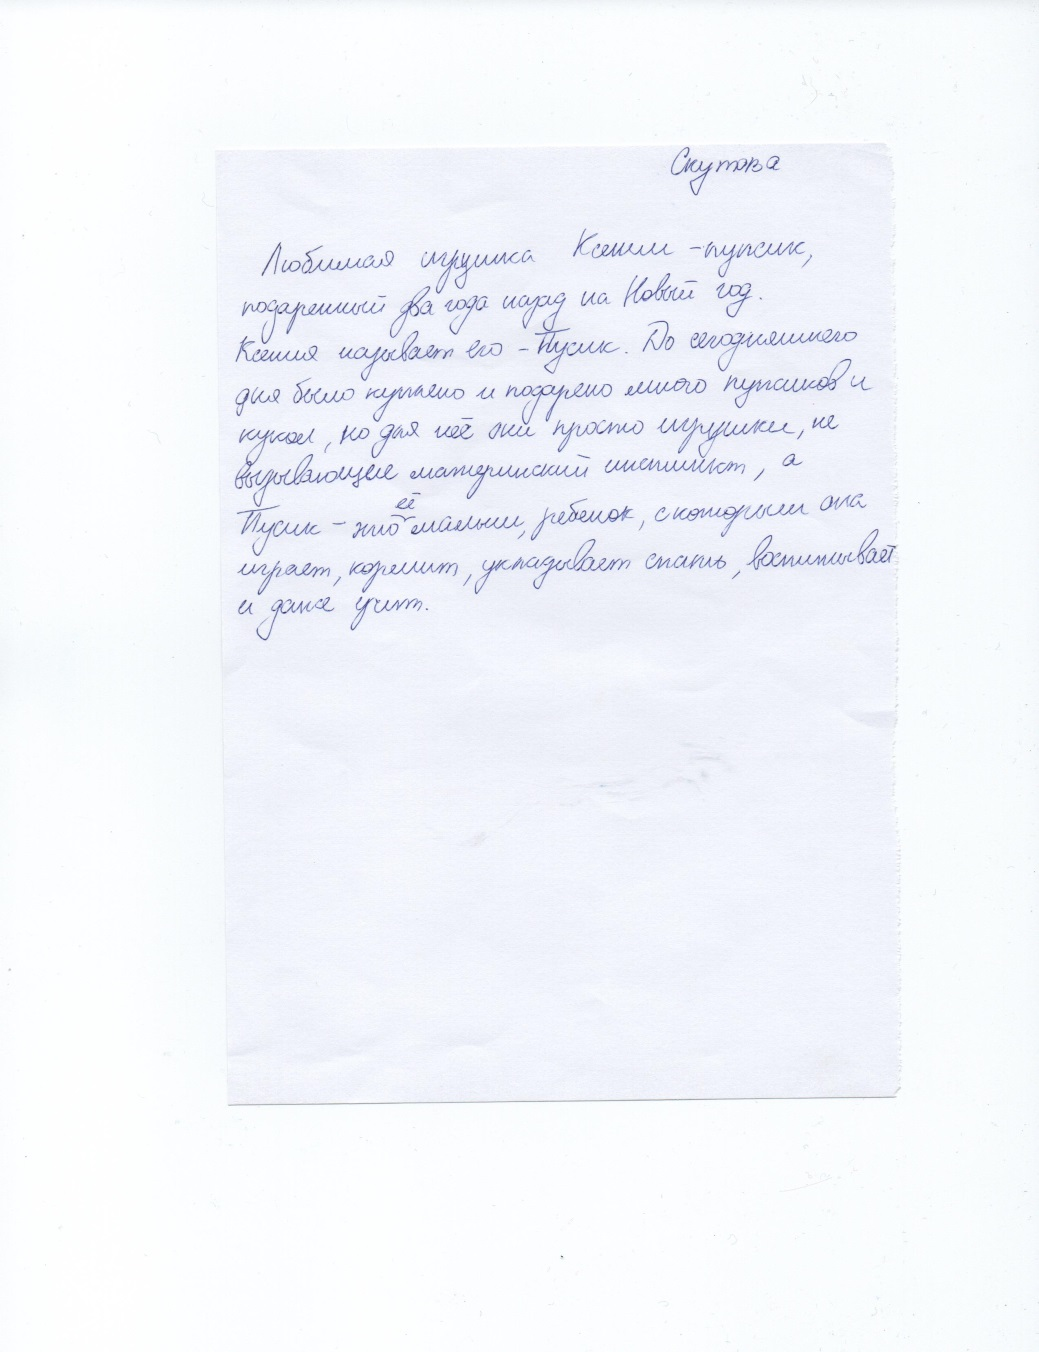 Скутова
Любимая игрушка Ксении - пупсик,
подаренный два года назад на Новый год.
Ксения называет его - Пусик. До сегодняшнего
дня было куплено и подарено много пупсиков и
кукол, но для неё они просто игрушки, не
вызывающие материнский инстинкт, а
её
Пусик - это малыш, ребенок, с которым она
играет, кормит, укладывает спать, воспитывает
и даже учит.